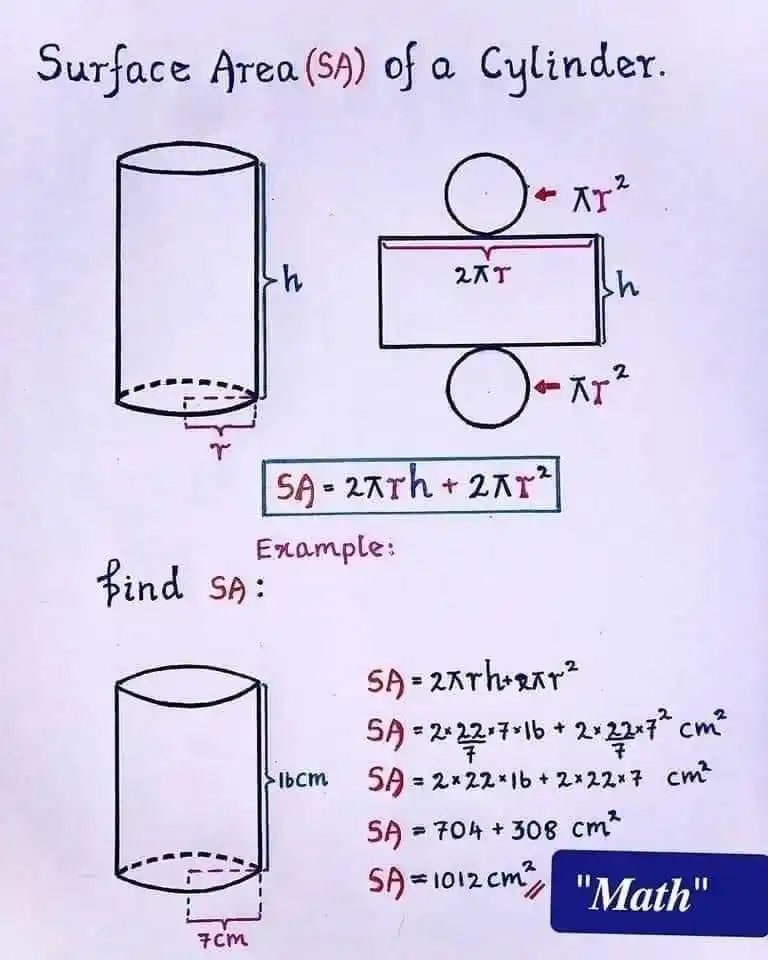 Surface Area (SA) of a Cylinder.
h
r
πr²
2πr
h
πr²
SA = 2πrh + 2πr²
Example:
find SA:
16cm
7cm
SA = 2πrh+2πr²
SA = 2×22/7×7×16 + 2×22/7×7² cm²
SA = 2×22×16 + 2×22×7 cm²
SA = 704 + 308 cm²
SA = 1012 cm²
"Math"